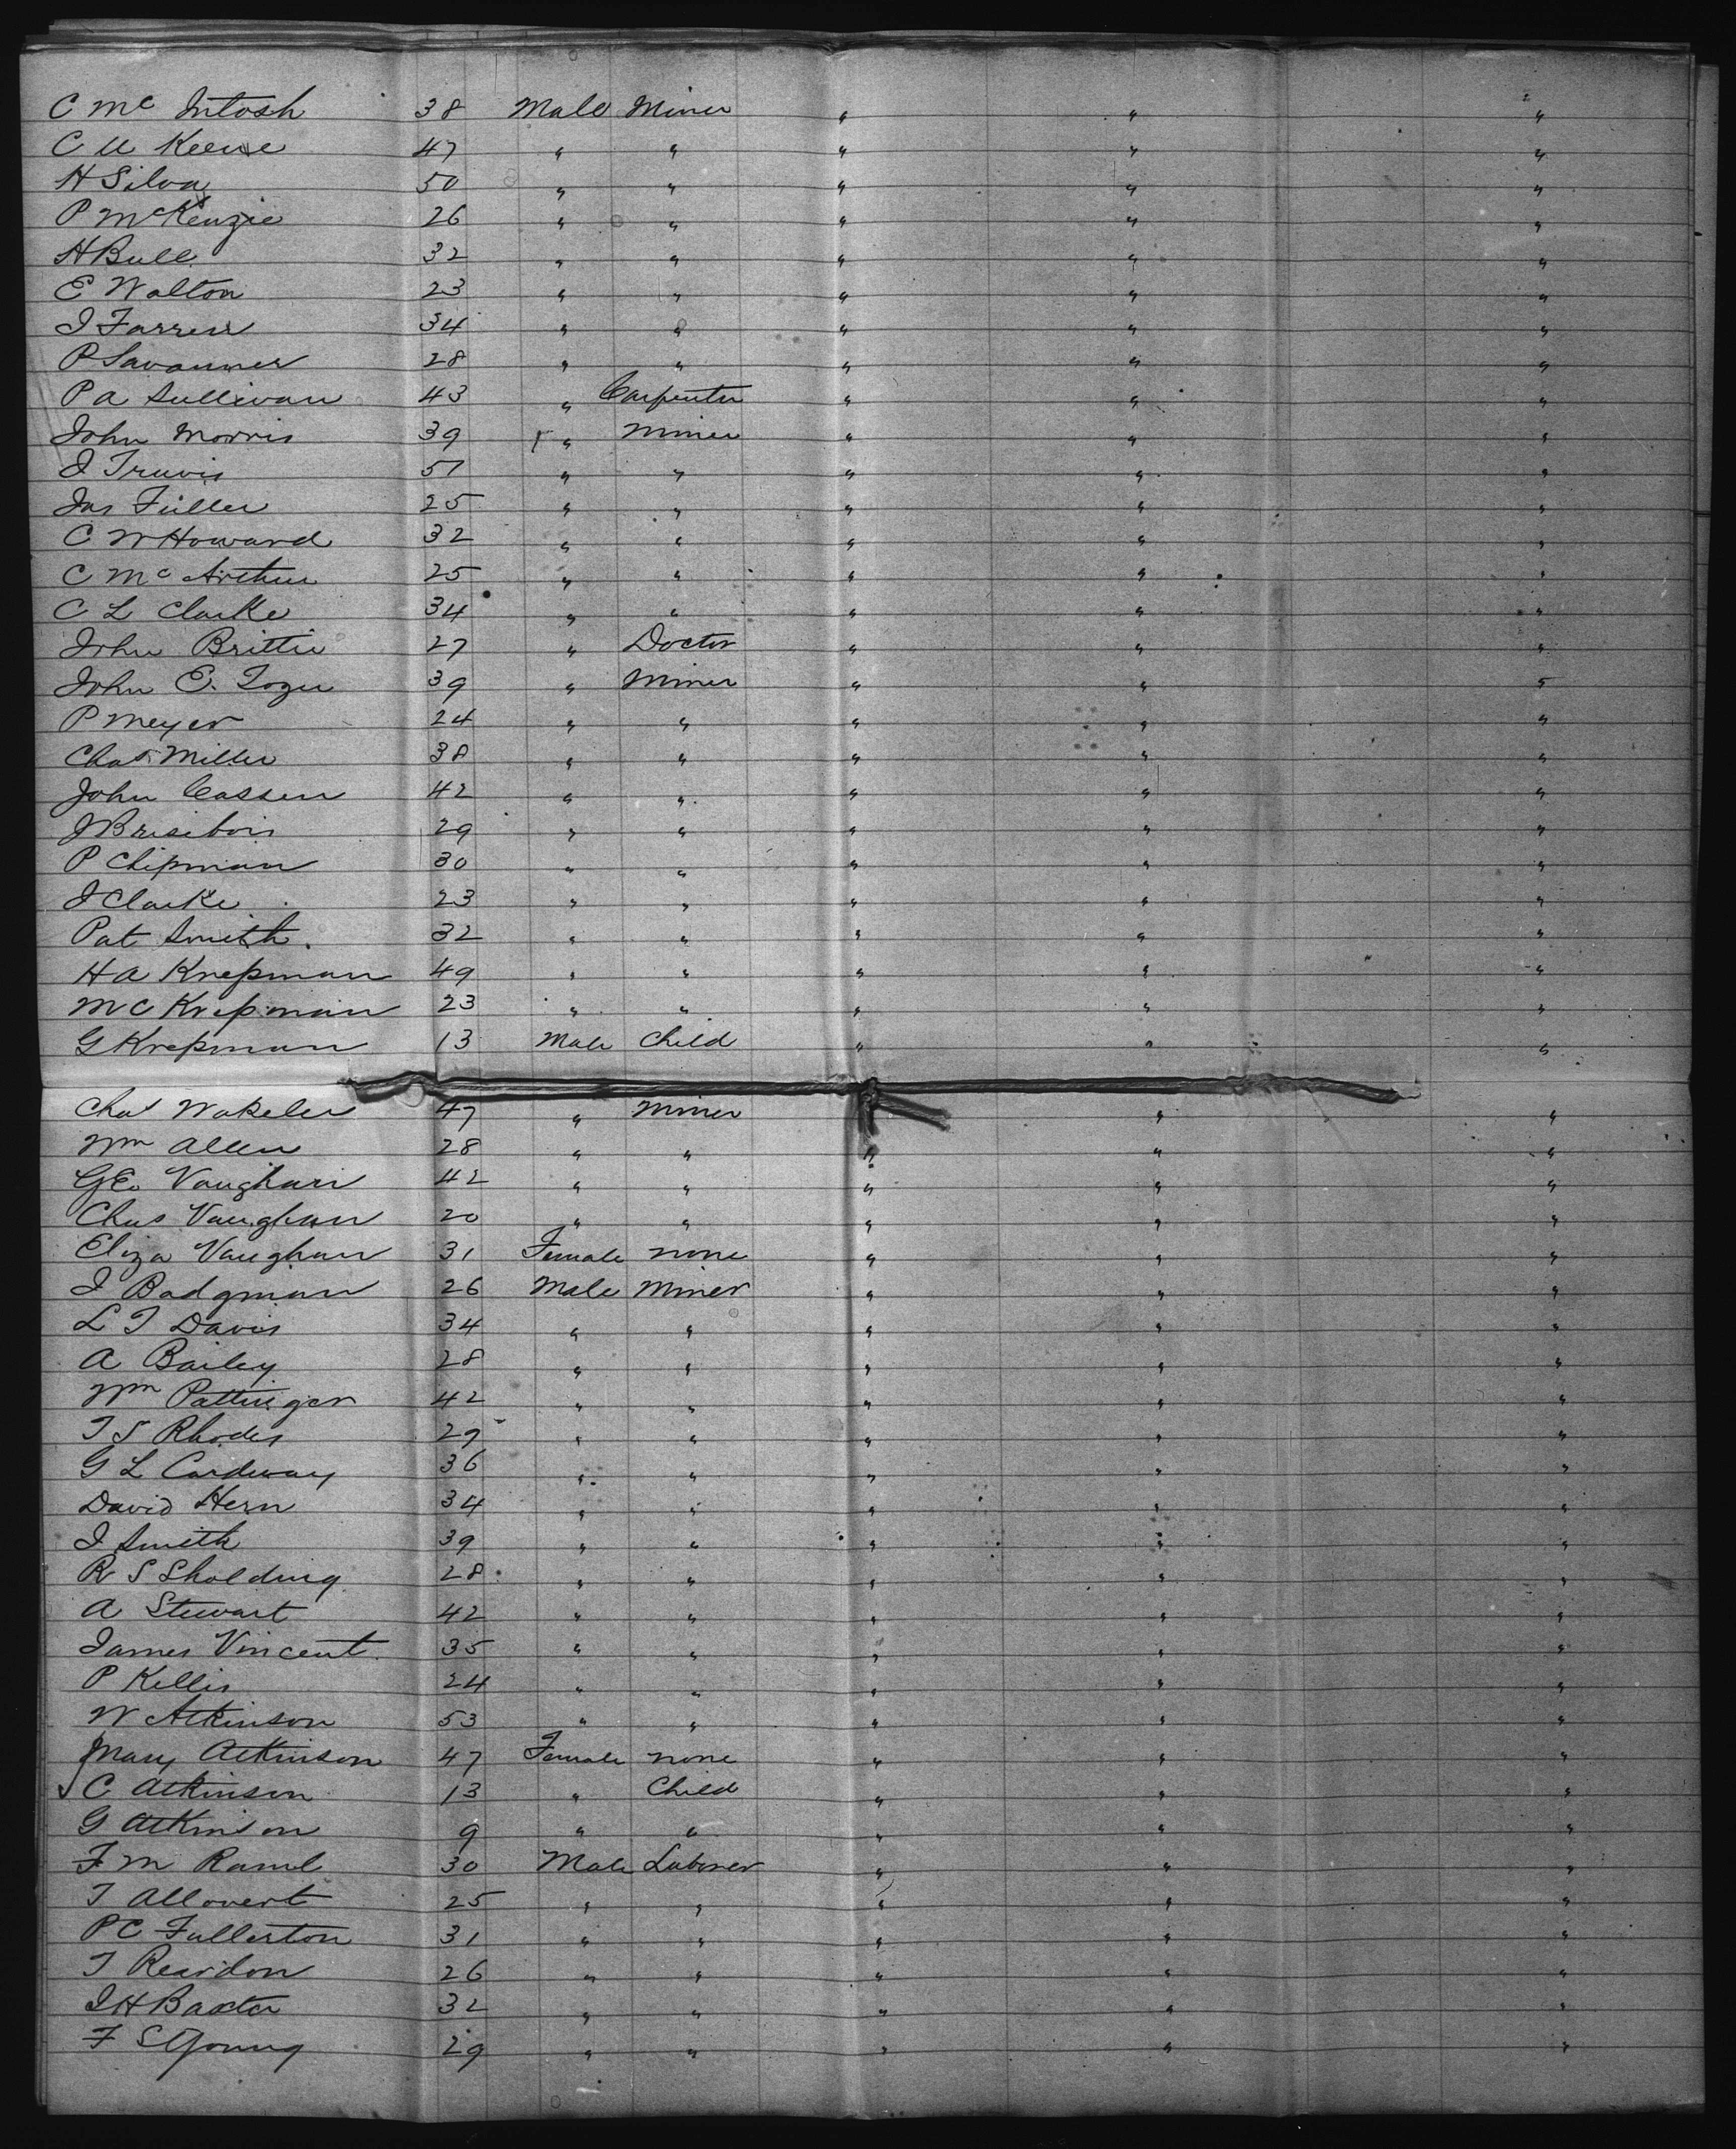 C Mc Intosh 38 Male Miner " " "
C U Keene 47 " " " " "
H Silva 50 " " " " "
P McKenzie 26 " " " " "
H Bull 32 " " " " "
E Walton 23 " " " " "
J Farrell 34 " " " " "
P 28 " " " " "
P A Sullivan 43 " Carpenter " " "
John Morris 39 " Miner " " "
J Travis 51 " " " " "
Jas Fuller 25 " " " " "
C W Howard 32 " " " " "
C Mc Arthur 25 " " " " "
C L Clarke 34 " " " " "
John Brittie 27 " Doctor " " "
John E. Tozer 39 " Miner " " "
P Meyer 24 " " " " "
Chas Miller 38 " " " " "
John Cassen 42 " " " " "
J Brisibois 29 " " " " "
P Chipman 30 " " " " "
J Clarke 23 " " " " "
Pat Smith. 32 " " " " "
H A Krepman 49 " " " " "
M C Krepman 23 " " " " "
G Krepman 13 Male Child " " "
Chas Wakeler 47 " Miner " " "
Wm Allen 28 " " " " "
G E. Vaughan 42 " " " " "
Chas Vaughan 20 " " " " "
Eliza Vaughan 31 Female none " " "
J Badgman 26 Male Miner " " "
L T Davis 34 " " " " "
A Bailey 28 " " " " "
Wm Pattinger 42 " " " " "
T S Rhodes 29 " " " " "
G L Cardway 36 " " " " "
David Hern 34 " " " " "
J Smith 39 " " " " "
R S Sholding 28 " " " " "
A Stewart 42 " " " " "
James Vincent. 35 " " " " "
P Kellis 24 " " " " "
W Atkinson 53 " " " " "
Mary Atkinson 47 Female none " " "
C Atkinson 13 " Child " " "
G Atkinson 9 " " " " "
F M 30 Male Laborer " " "
T Allovert 25 " " " " "
P C Fullerton 31 " " " " "
T Reardon 26 " " " " "
J H Baxter 32 " " " " "
F S Young 29 " " " " "